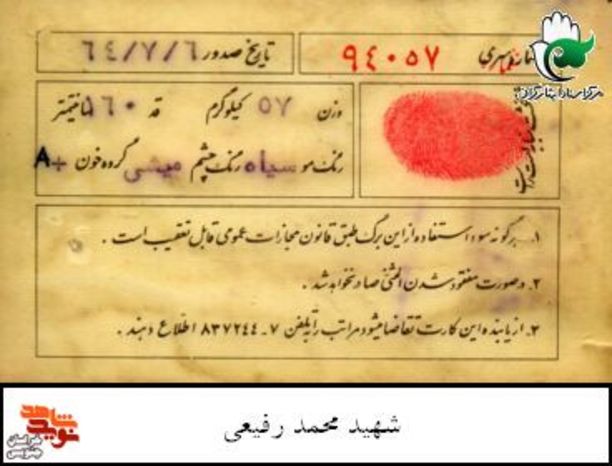 شماره سری ۹٤۰۵۷
تاریخ صدور ٦٤/۷/٦
مرکز اسناد ایثارگران
وزن ۵۷ کیلوگرم قد ۱٦۰ سانتیمتر
رنگ مو سیاه رنگ چشم میشی گروه خون A+
۱. هرگونه سوء استفاده از این برگ طبق قانون مجازات عمومی قابل تعقیب است .
۲. در صورت مفقود شدن المثنی صادر نخواهد شد .
۳. از یابنده این کارت تقاضا میشود مراتب را به تلفن ۷-۸۳۷۲٤٤ اطلاع دهند .
شهید محمد رفیعی
نوید شاهد
خراسان جنوبی